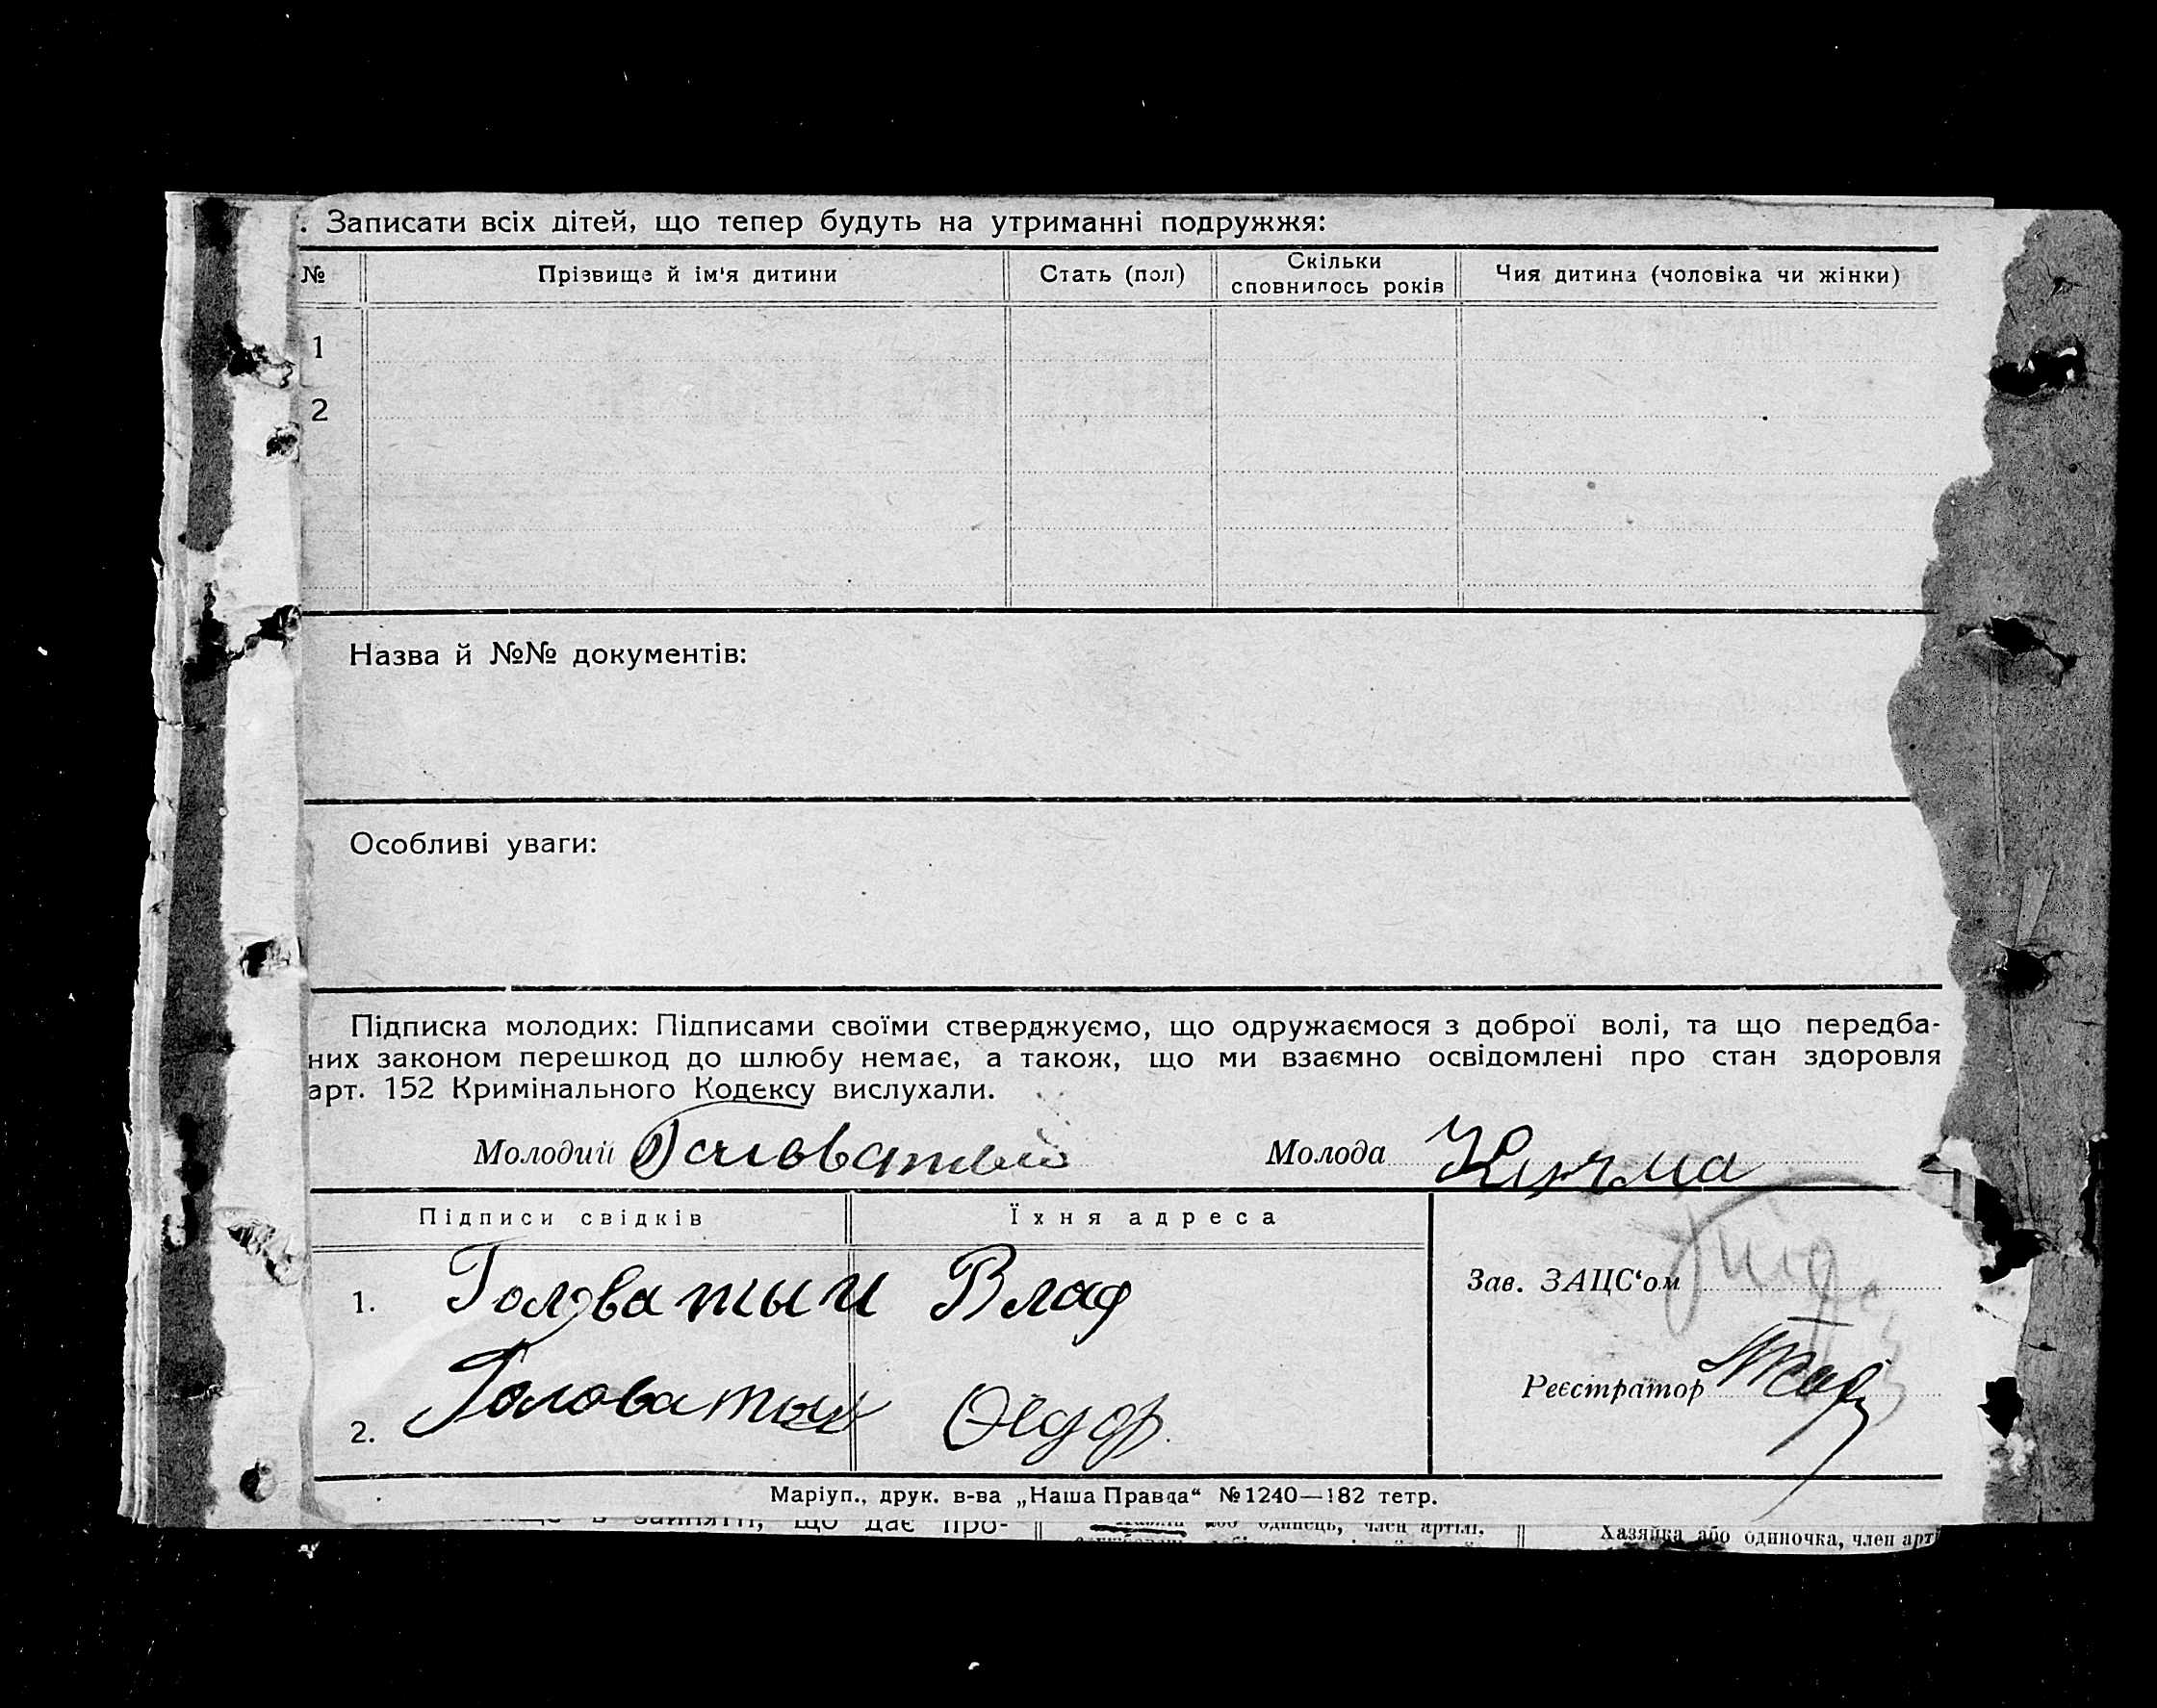 . Записати всіх дітей, що тепер будуть на утриманні подружжя:
№ Прізвище й ім'я дитини Стать (пол) Скільки сповнилось років Чия дитина (чоловіка чи жінки)
1
2
Назва й №№ документів:
Особливі уваги:
Підписка молодих: Підписами своїми стверджуємо, що одружаємося з доброї волі, та що передба-
них законом перешкод до шлюбу немає, а також, що ми взаємно освідомлені про стан здоровля
арт. 152 Кримінального Кодексу вислухали.
Молодий Головатый Молода
Підписи свідків Їхня адреса
1. Головатый Влад
Зав. ЗАЦС'ом
2. Головатый Федор
Реєстратор
Маріуп., друк. в-ва „Наша Правда“ №1240—182 тетр.
зайнятті, що дає про- або одинець, член артілі. Хазяйка або одиночка, член арті